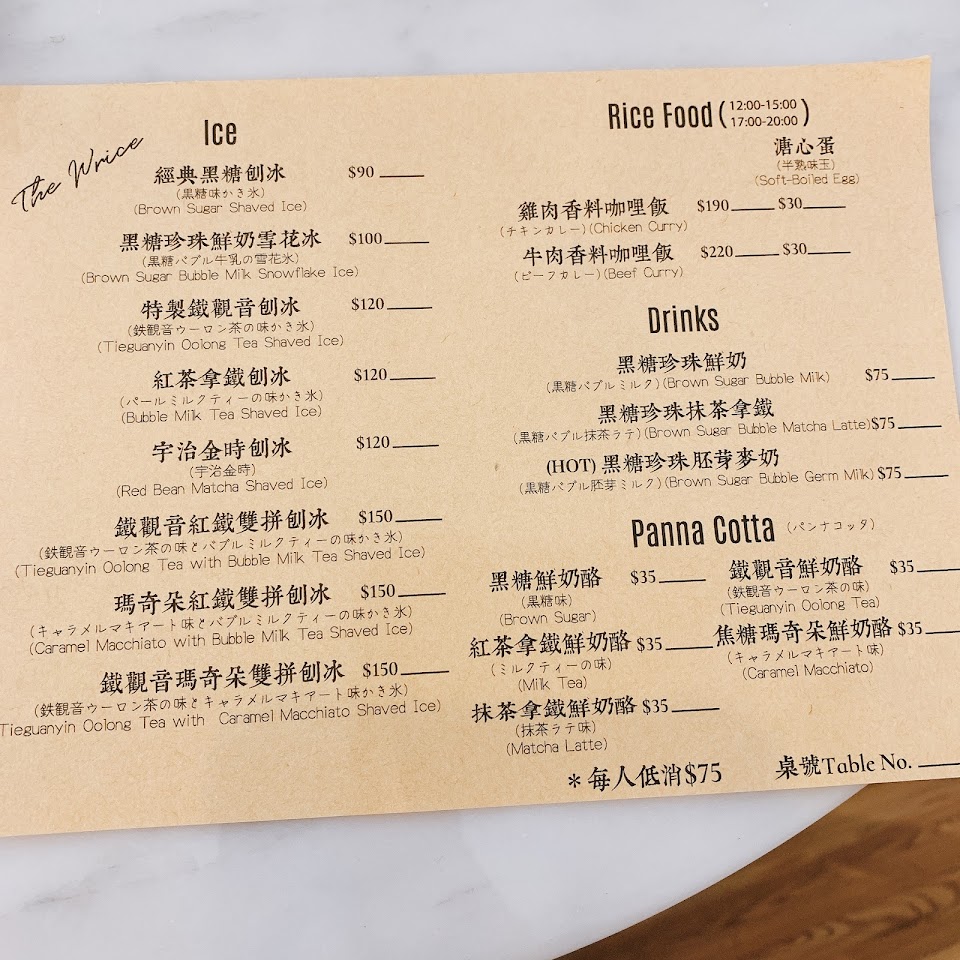 The Wrice
Ice
經典黑糖刨冰 $90
(黒糖味かき氷)
(Brown Sugar Shaved Ice)
黑糖珍珠鮮奶雪花冰 $100
(黒糖バブル牛乳の雪花氷)
(Brown Sugar Bubble Milk Snowflake Ice)
特製鐵觀音刨冰 $120
(鉄観音ウーロン茶の味かき氷)
(Tieguanyin Oolong Tea Shaved Ice)
紅茶拿鐵刨冰 $120
(パールミルクティーの味かき氷)
(Bubble Milk Tea Shaved Ice)
宇治金時刨冰 $120
(宇治金時)
(Red Bean Matcha Shaved Ice)
鐵觀音紅鐵雙拼刨冰 $150
(鉄観音ウーロン茶の味とバブルミルクティーの味かき氷)
(Tieguanyin Oolong Tea with Bubble Milk Tea Shaved Ice)
瑪奇朵紅鐵雙拼刨冰 $150
(キャラメルマキアート味とバブルミルクティーの味かき氷)
(Caramel Macchiato with Bubble Milk Tea Shaved Ice)
鐵觀音瑪奇朵雙拼刨冰 $150
(鉄観音ウーロン茶の味とキャラメルマキアート味かき氷)
Tieguanyin Oolong Tea with Caramel Macchiato Shaved Ice)
Rice Food (12:00-15:00
17:00-20:00)
溏心蛋
(半熟味玉)
(Soft-Boiled Egg)
雞肉香料咖哩飯 $190 $30
(チキンカレー)(Chicken Curry)
牛肉香料咖哩飯 $220 $30
(ビーフカレー)(Beef Curry)
Drinks
黑糖珍珠鮮奶
(黒糖バブルミルク)(Brown Sugar Bubble Milk) $75
黑糖珍珠抹茶拿鐵
(黒糖バブル抹茶ラテ)(Brown Sugar Bubble Matcha Latte) $75
(HOT) 黑糖珍珠胚芽麥奶
(黒糖バブル胚芽ミルク)(Brown Sugar Bubble Germ Milk) $75
Panna Cotta (パンナコッタ)
黑糖鮮奶酪 $35
(黒糖味)
(Brown Sugar)
鐵觀音鮮奶酪 $35
(鉄観音ウーロン茶の味)
(Tieguanyin Oolong Tea)
紅茶拿鐵鮮奶酪 $35
(ミルクティーの味)
(Milk Tea)
焦糖瑪奇朵鮮奶酪 $35
(キャラメルマキアート味)
(Caramel Macchiato)
抹茶拿鐵鮮奶酪 $35
(抹茶ラテ味)
(Matcha Latte)
*每人低消$75
桌號Table No.